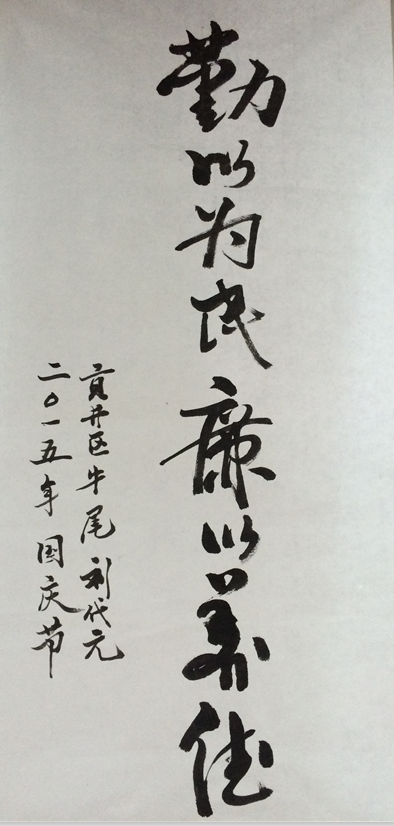 勤以为民廉以养德
贡井区牛尾 刘代元
二〇一五年国庆节